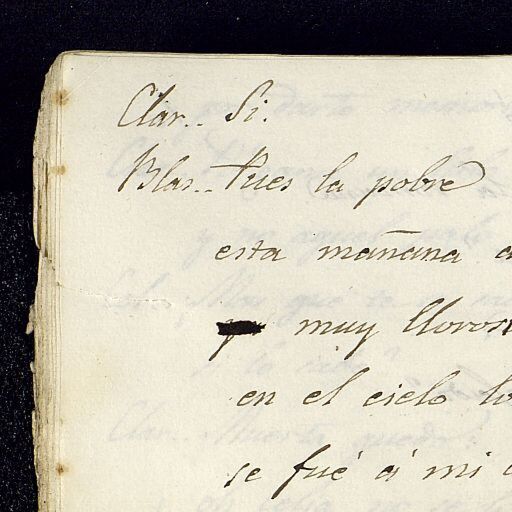 Clar.. Si.
Blas.. Pues la pobre
esta mañana
muy lloros
en el cielo lo
se fué á mi